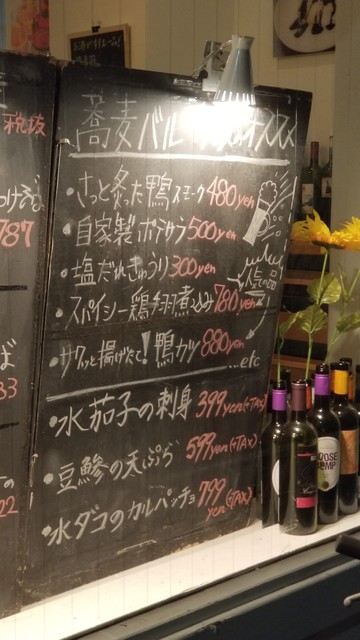 税抜
787
蕎麦バル オススメ
・さっと炙った鴨スモーク 480yen
・自家製ポテサラ 500yen
・塩だれきゅうり 300yen
人気の品
・スパイシー鶏手羽煮込み 780yen
・サクッと揚げたて!鴨カツ 880yen
...etc
・水茄子の刺身 399yen(+TAX)
・豆鯵の天ぷら 599yen(+TAX)
・水ダコのカルパッチョ 799yen(+TAX)